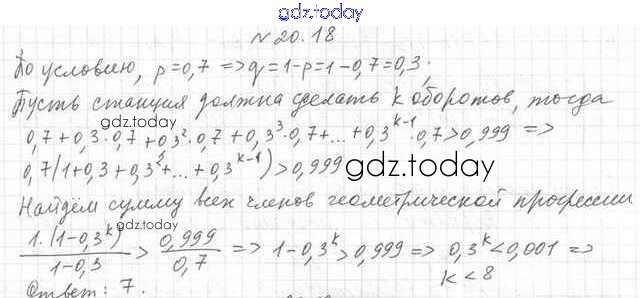 gdz.today
№ 20.18
По условию, p=0,7 => q=1-p=1-0,7=0,3;
Пусть станция должна сделать k оборотов, тогда
gdz.today
0,7+0,3·0,7+0,3²·0,7+0,3³·0,7+...+0,3^(k-1)·0,7>0,999 =>
0,7(1+0,3+0,3²+...+0,3^(k-1))>0,999
gdz.today
Найдём сумму всех членов геометрической прогрессии
gdz.today
1·(1-0,3^k)/(1-0,3) > 0,999/0,7 => 1-0,3^k>0,999 => 0,3^k<0,001 =>
k<8
Ответ: 7.